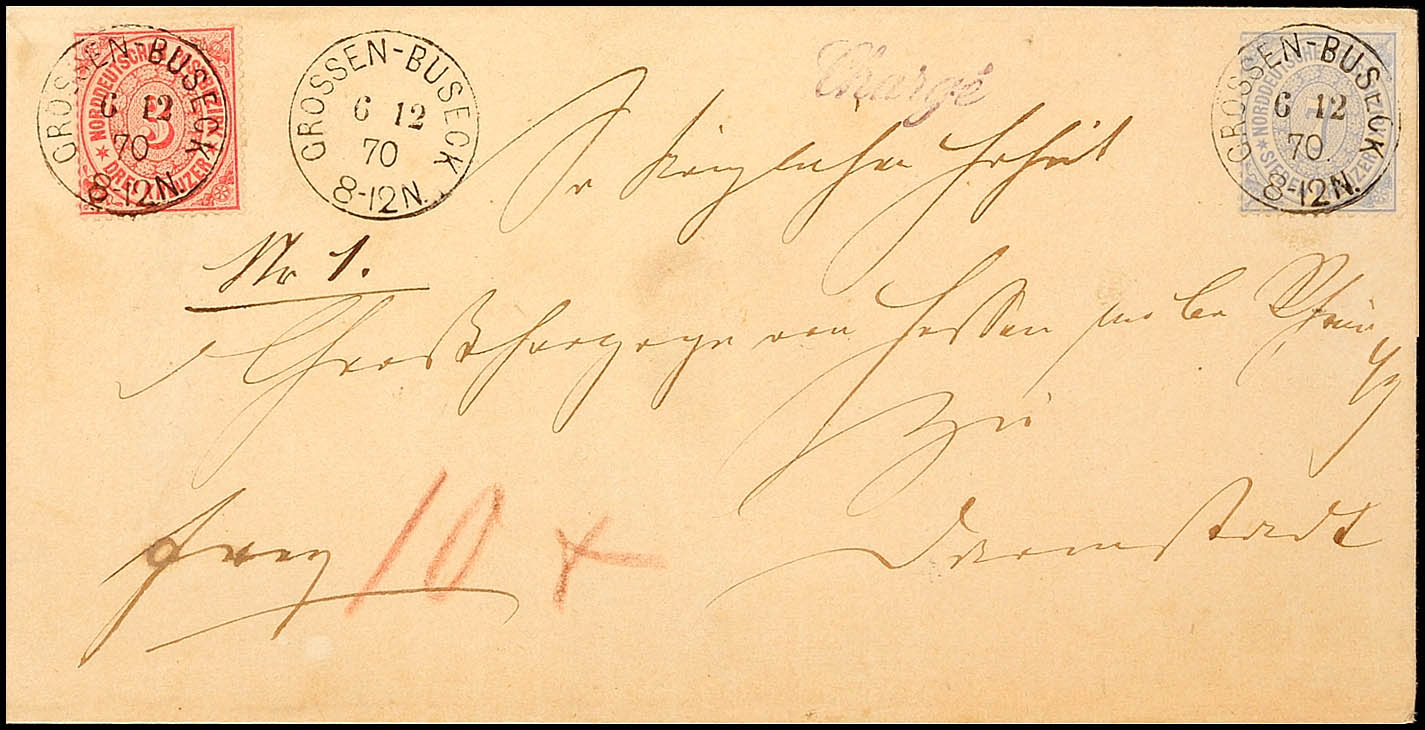 NORDDEUTSCHER POSTBEZIRK
3
DREI KREUZER
GROSSEN-BUSECK
6 12
70
8-12N.
GROSSEN-BUSECK
6 12
70
8-12N.
Chargé
NORDDEUTSCHER POSTBEZIRK
7
SIEBEN KREUZER
GROSSEN-BUSECK
6 12
70.
8-12N.
Hoheit
Nr 1.
Großherzoge von Hessen und bei Rhein
zu
frey 10 x
Darmstadt